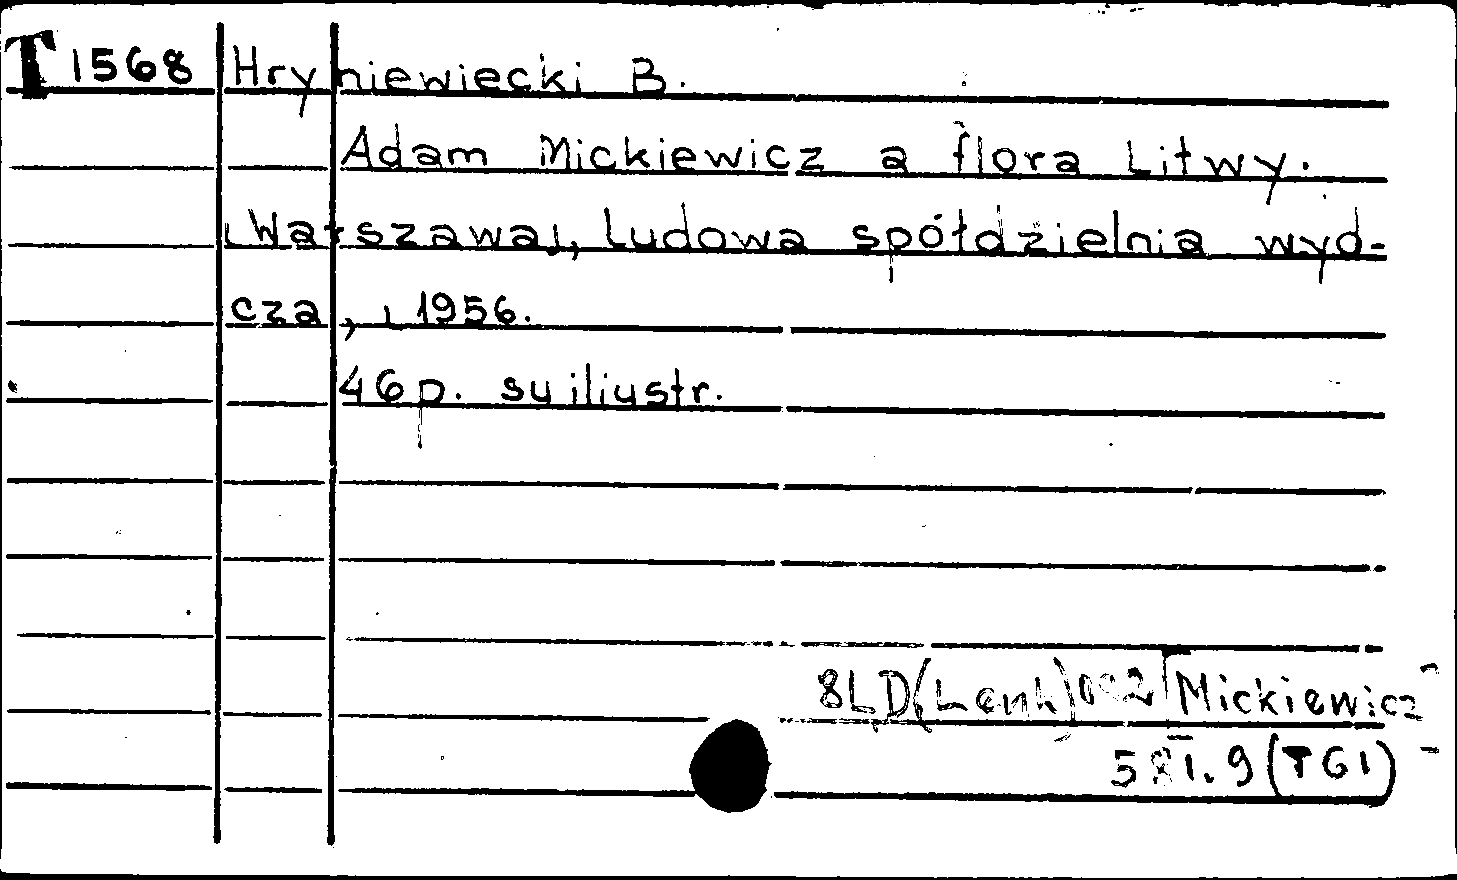 T 1568 Hryniewiecki B.
Adam Mickiewicz a flora Litwy.
[Warszawa], Ludowa spółdzielnia wyd-
cza, [1956.
46p. su iliustr.
8LD(Lenk)092 Mickiewicz
581.9(TG1)